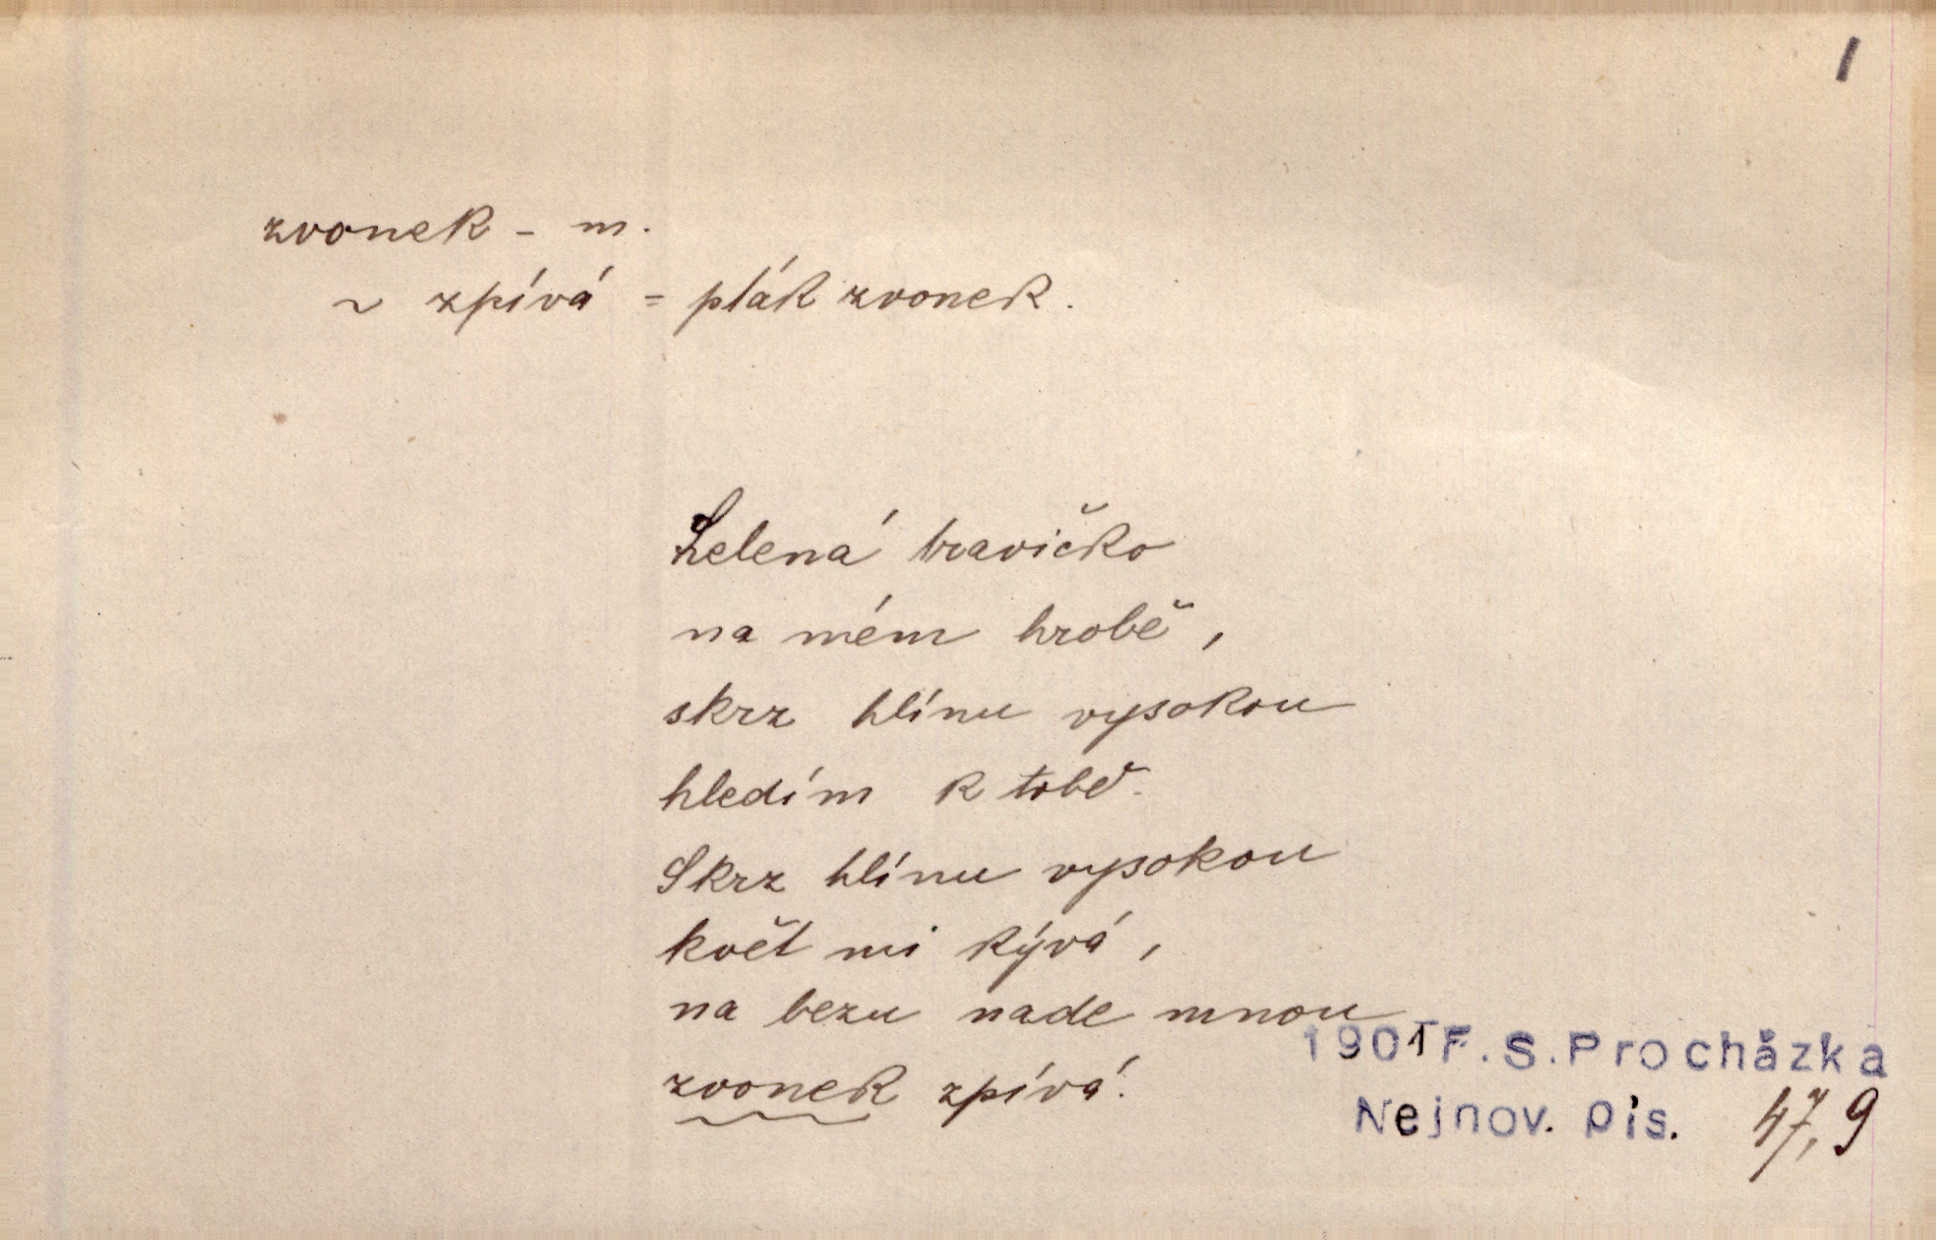 1
zvonek - m.
~ zpívá = pták zvonek.
Zelená travičko
na mém hrobě,
skrz hlínu vysokou
hledím k tobě.
Skrz hlínu vysokou
květ mi kývá,
na bezu nade mnou
zvonek zpívá.
1901 F. S. Procházka
Nejnov. pís. 47, 9